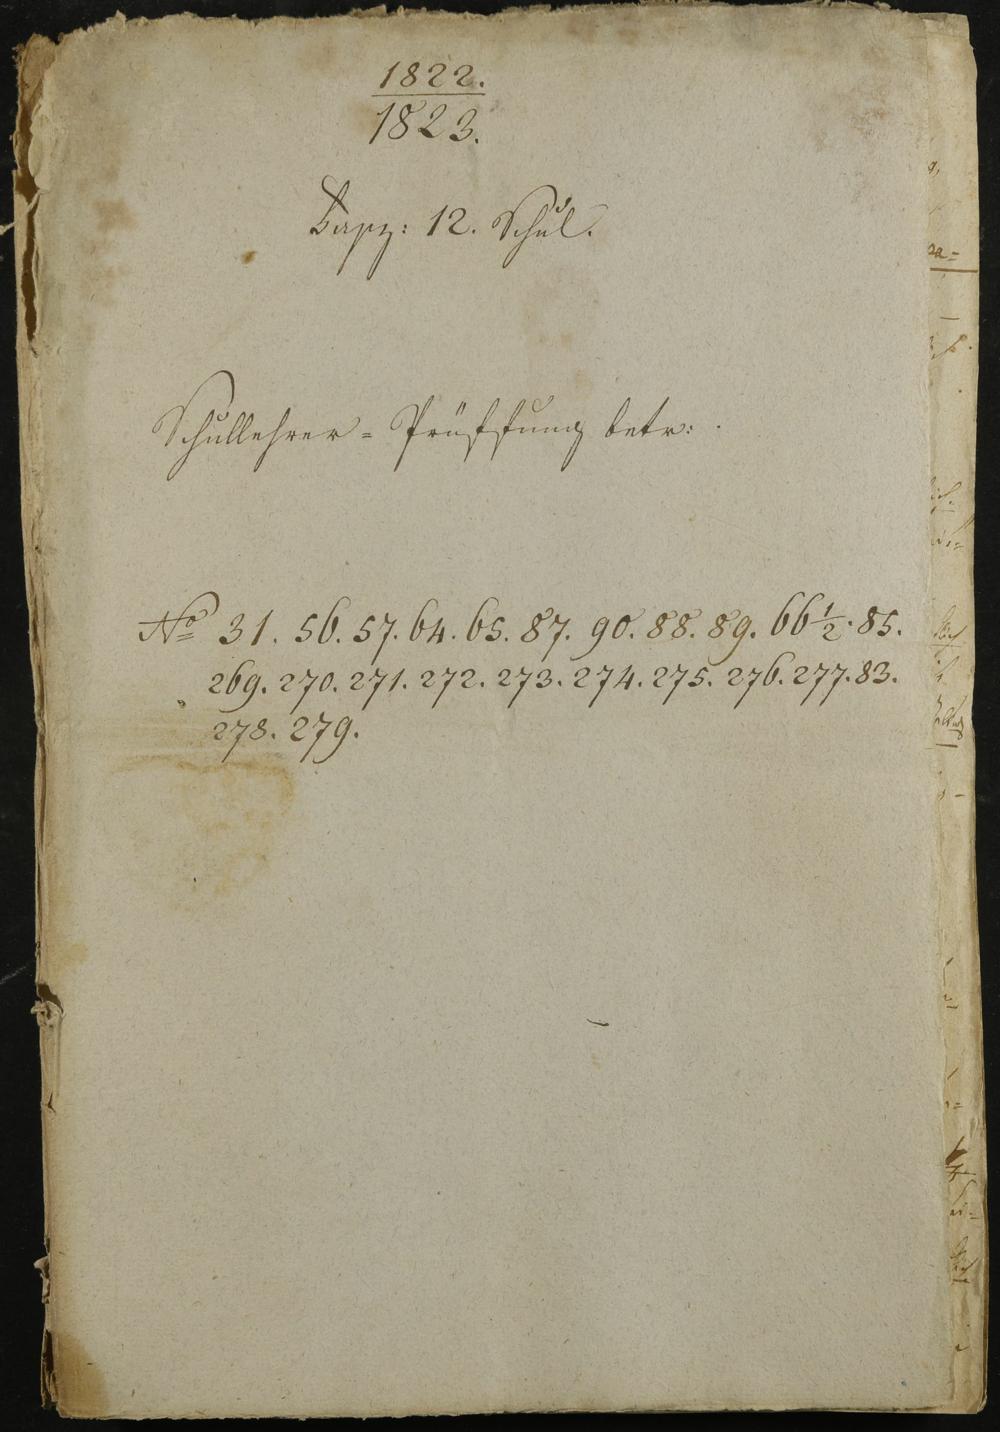 1822.
1823.
Fasz: 12. Schul.
Schullehrer = Prüffung betr:
No 31. 56. 57. 64. 65. 87. 90. 88. 89. 66 1/2. 85.
269. 270. 271. 272. 273. 274. 275. 276. 277. 83.
278. 279.